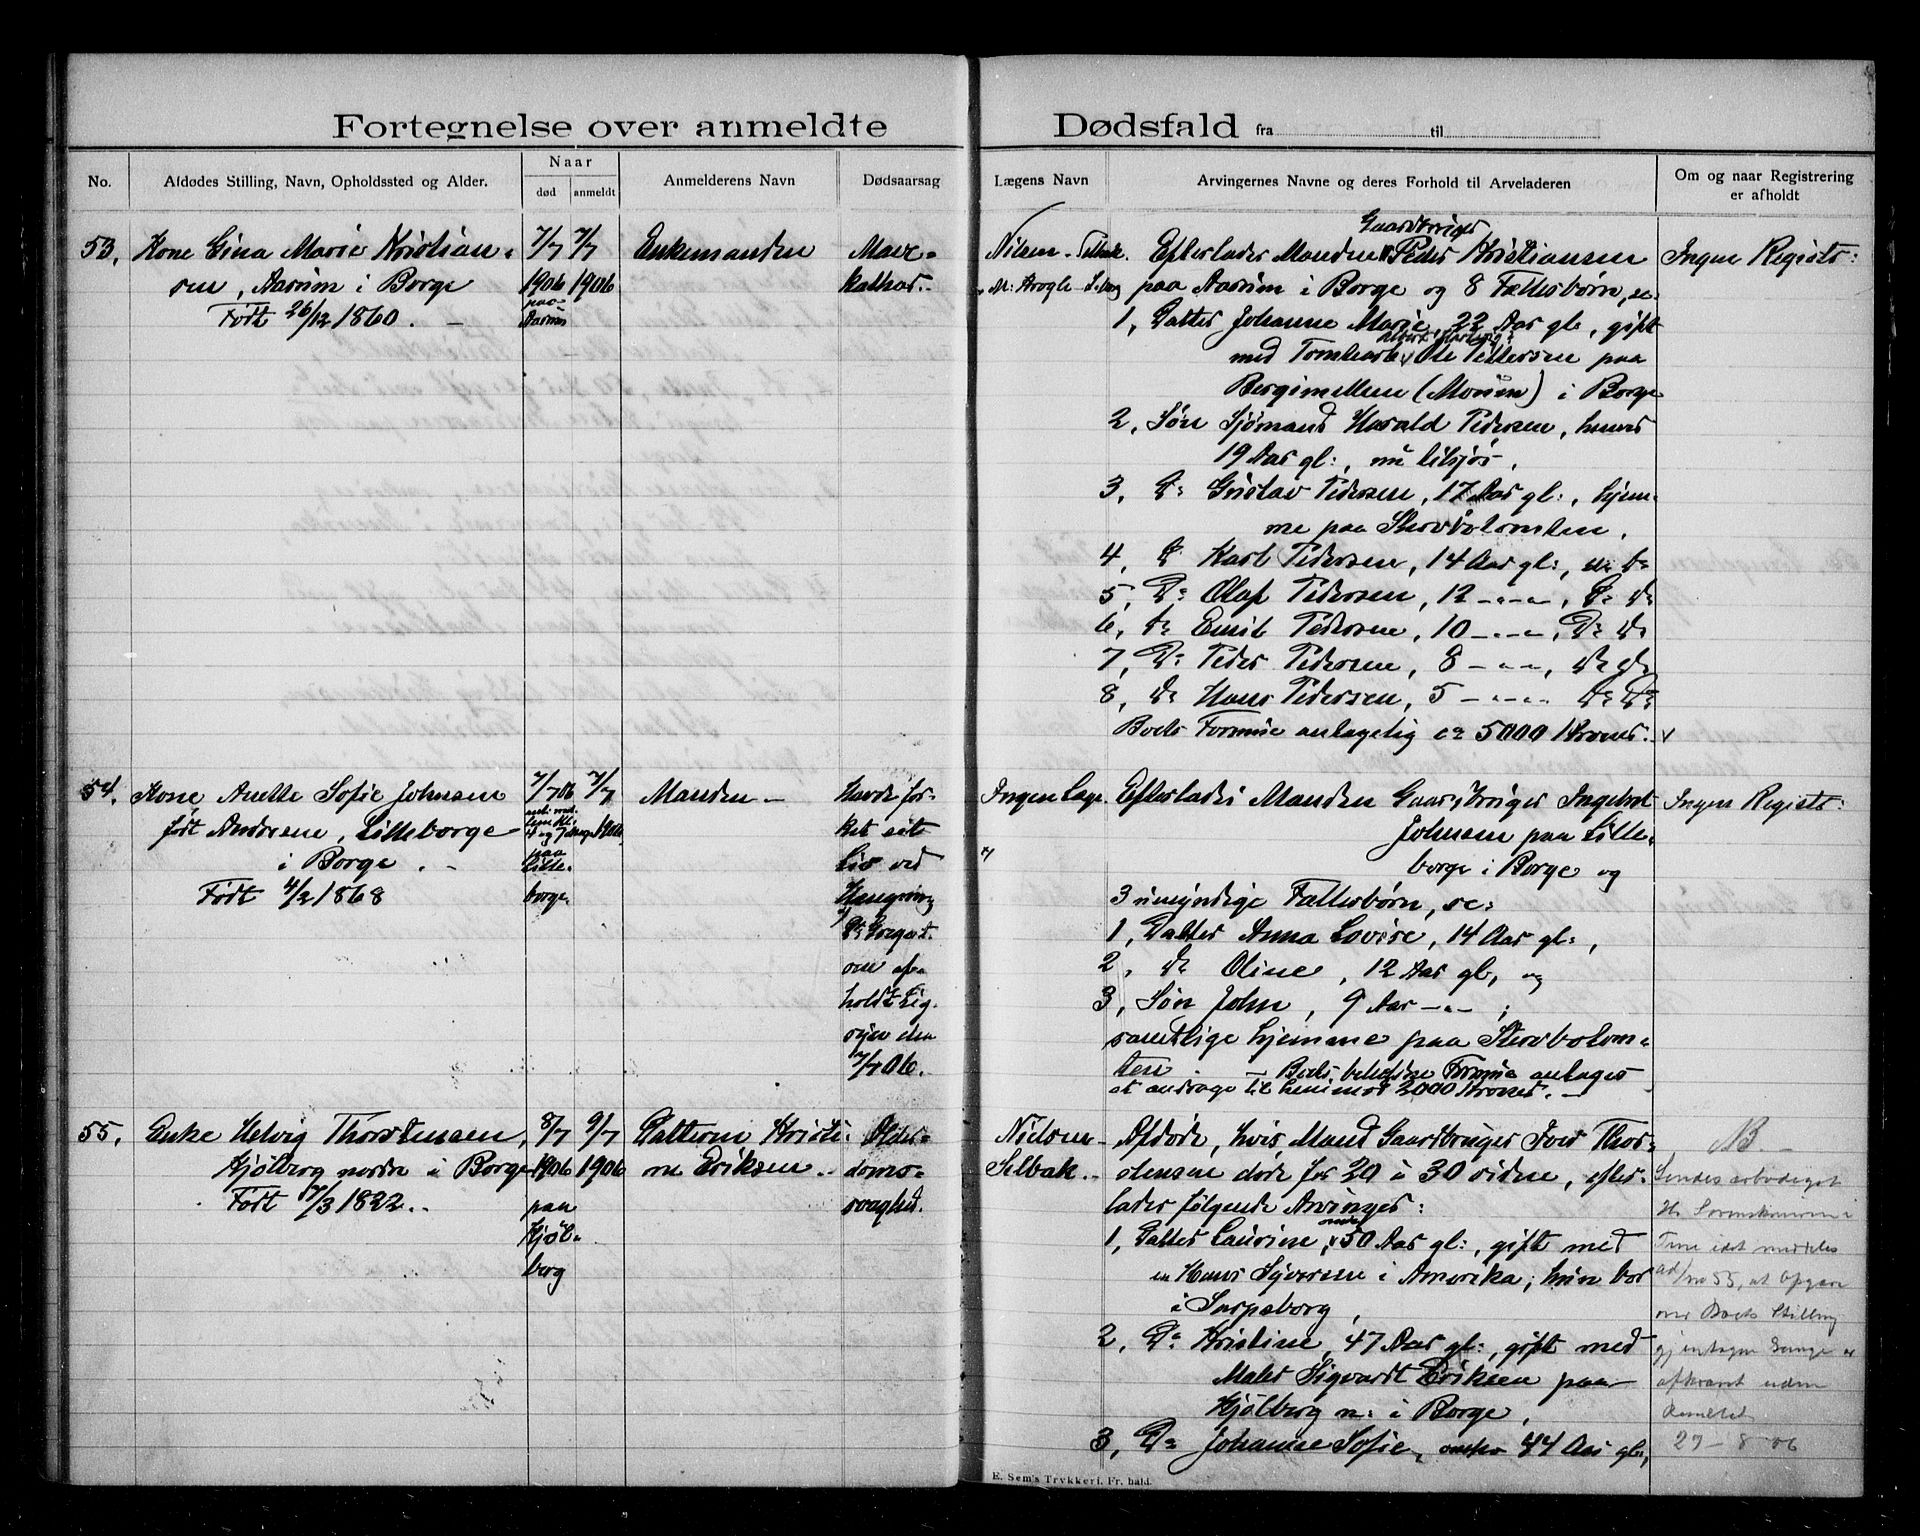 Fortegnelse over anmeldte Dødsfald fra til
No.
Afdødes Stilling, Navn, Opholdssted og Alder.
Naar
død
anmeldt
Anmelderens Navn
Dødsaarsag
Lægens Navn
Arvingernes Navne og deres Forhold til Arveladeren
Om og naar Registrering
er afholdt
53, Kone Gina Marie Kristian-
sen, Aarum i Borge
Født 26/12 1860. -
7/7
1906
paa
Aarum
7/7
1906
Enkemanden
Mave-
kathar.
Nilsen - Selbak
Gaardbruger
Efterlader Manden Peder Kristiansen
paa Aarum i Borge og 8 Fællesbørn, se:
1, Datter Johanne Marie, 22 Aar gl., gift
med Tomtearb. Ole Pettersen paa
Bergimellem (Moum) i Borge
2, Søn Sjømand Harald Pedersen, henved
19 Aar gl:, nu tilsjøs,
3, Do Gustav Pedersen, 17 Aar gl:, hjem-
me paa Stervbotomten,
4, Do Karl Pedersen, 14 Aar gl:, Do Do
5, Do Olaf Pedersen, 12 - - -, Do Do
6, Do Emil Pedersen, 10 - - -, Do Do
7, Do Peder Pedersen, 8 - - -, Do Do
8, Do Hans Pedersen, 5 - - - Do Do
Boets Formue antagelig ca 5000 Kroner.
Ingen Registr:
54, Kone Anette Sofie Johnsen
født Andresen, Lilleborge
i Borge. -
Født 4/2 1868
7/7 06
mel-
lem Kl.
4 og 7 Morgen
paa
Lille-
borge.
7/7
1906
Manden -
Havde for-
kortet sit
Liv ved
Hængning
Do Gregert-
sen af-
holdt Lig-
syn den
7/7 06.
Ingen Læge
Efterlader Manden Gaardbruger Ingebret
Johnsen paa Lille-
borge i Borge og
3 umyndige Fællesbørn, se:
1, Datter Anna Lovise, 14 Aar gl:,
2, Do Oline, 12 Aar gl, og
3, Søn John, 9 Aar - - ;
samtlige hjemme paa Stervbotom-
ten. - Boets beholdne Formue antages
at andrage til henimod 2000 Kroner. -
Ingen Registr:
55, Enke Helvig Thorstensen,
Kjølberg nordre i Borge
Født 7/3 1822..
8/7
1906
paa
Kjøl-
berg
9/7
1906
Datteren Kristi-
ne Eriksen..
Alder-
doms-
svaghed.
Nielsen -
Selbak.
Afdøde, hvis Mand Gaardbruger Iver Thor-
stensen døde for 20 à 30 siden, efter-
lader følgende Arvinger:
1, Datter Laurine, over 50 Aar gl:, gift med
en Hans Syversen i Amerika; hun bor
i Sarpsborg,
2, Do Kristine, 47 Aar gl:, gift med
Maler Sigvardt Eriksen paa
Kjølberg n: i Borge,
3, Do Johanne Sofie, omtr. 44 Aar gl:,
NB. -
Sendes arbødigst
Hr. Sorenskriveren i
Tune idet meddeles
ad/no 55, at Opgave
over Boets Stilling
gjentagne Gange er
afkrævet uden
Resultat
29 - 8 06
E. Sem's Trykkeri. Fr. hald.